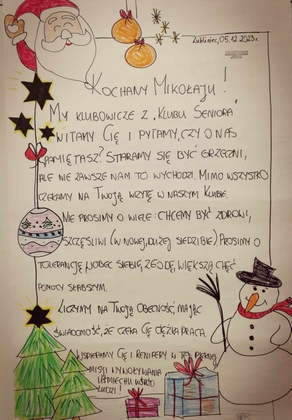 Lubliniec, 05.12.2023r.
Kochany Mikołaju!
My klubowicze z „Klubu Seniora"
witamy Cię i pytamy, czy o nas
pamiętasz? Staramy się być grzeczni,
ale nie zawsze nam to wychodzi. Mimo wszystko
czekamy na Twoją wizytę w naszym klubie.
Nie prosimy o wiele: chcemy być zdrowi,
szczęśliwi (w nowej, dużej siedzibie) Prosimy o
tolerancję wobec siebie, zgodę, większą chęć
pomocy słabszym.
Liczymy na Twoją obecność mając
świadomość, że czeka Cię ciężka praca.
Wspieramy Cię i renifery w tej pięknej
misji wywoływania
uśmiechu wśród
ludzi!